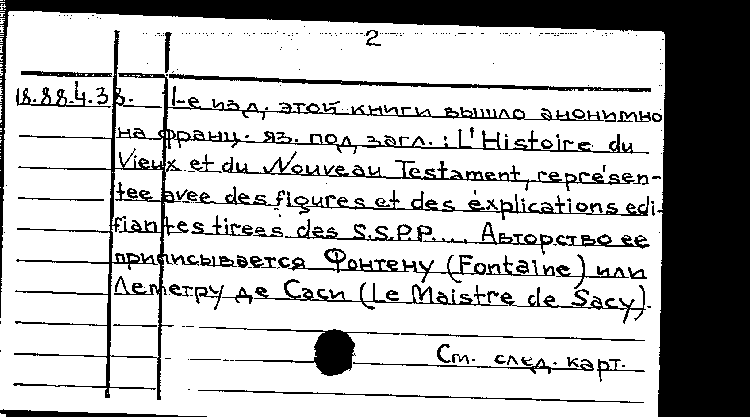 2
18.88.4.38. 1-е изд. этой книги вышло анонимно
на франц. яз. под загл.: L'Histoire du
Vieux et du Nouveau Testament, représen-
tee avee des figures et des éxplications edi-
fiantes tirees des S.S.P.P... Авторство ее
приписывается Фонтену (Fontaine) или
Леметру де Саси (Le Maistre de Sacy).
См. след. карт.